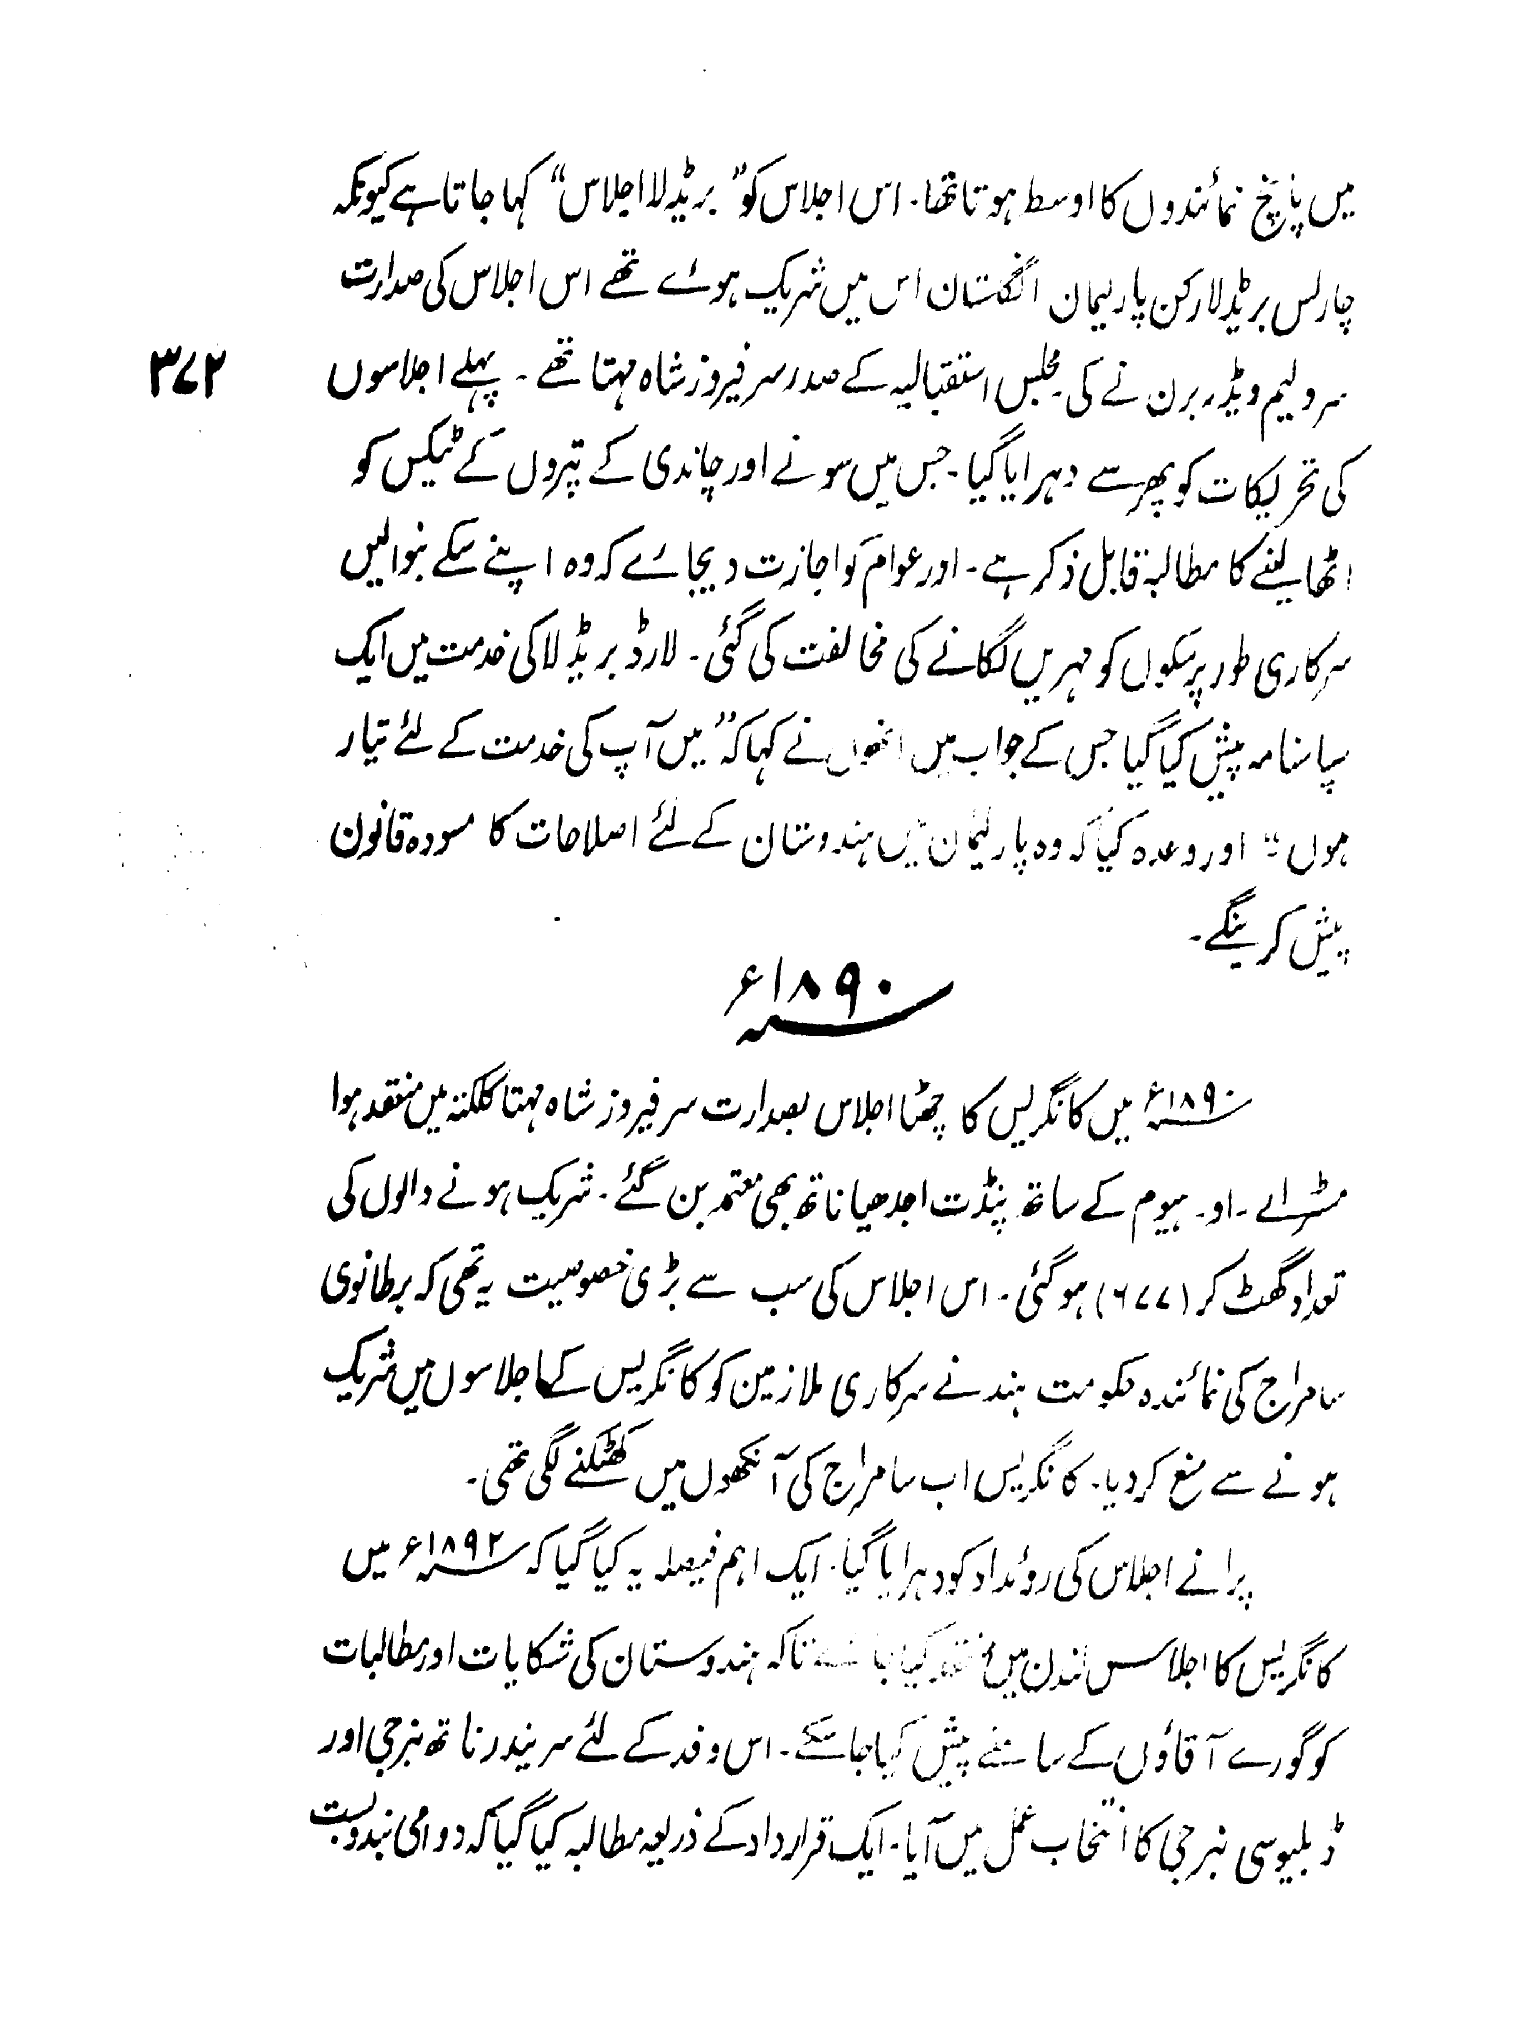 میں پانچ نمائندوں کا اوسط ہوتا تھا۔ اس اجلاس کو "بریڈلا اجلاس" کہا جاتا ہے کیونکہ
چارلس بریڈلا رکن پارلیمان انگلستان اس میں شریک ہوئے تھے اس اجلاس کی صدارت
سرولیم ویڈر برن نے کی۔ مجلس استقبالیہ کے صدر سر فیروز شاہ مہتا تھے۔ پہلے اجلاسوں
۳۷۲
کی تحریکات کو پھر سے دہرایا گیا۔ جس میں سونے اور چاندی کے پتروں کے ٹیکس کو
اٹھا لینے کا مطالبہ قابل ذکر ہے۔ اور عوام کو اجازت دیجائے کہ وہ اپنے سکے بنوالیں
سرکاری طور پر سکوں کو مہریں لگانے کی مخالفت کی گئی۔ لارڈ بریڈلا کی خدمت میں ایک
سپاسنامہ پیش کیا گیا جس کے جواب میں انھوں نے کہا کہ "میں آپ کی خدمت کے لئے تیار
ہوں" اور وعدہ کیا کہ وہ پارلیمان میں ہندوستان کے لئے اصلاحات کا مسودہ قانون
پیش کرینگے۔
سنہ ۱۸۹۰ء
سنہ ۱۸۹۰ء میں کانگریس کا چھٹا اجلاس بصدارت سر فیروز شاہ مہتا کلکتہ میں منعقد ہوا
مسٹر اے۔ او۔ ہیوم کے ساتھ پنڈت اجدھیا ناتھ بھی معتمد بن گئے۔ شریک ہونے والوں کی
تعداد گھٹ کر (۶۷۷) ہوگئی۔ اس اجلاس کی سب سے بڑی خصوصیت یہ تھی کہ برطانوی
سامراج کی نمائندہ حکومت ہند نے سرکاری ملازمین کو کانگریس کے اجلاسوں میں شریک
ہونے سے منع کردیا۔ کانگریس اب سامراج کی آنکھوں میں کھٹکنے لگی تھی۔
پرانے اجلاس کی روئداد کو دہرایا گیا۔ ایک اہم فیصلہ یہ کیا گیا کہ سنہ ۱۸۹۲ء میں
کانگریس کا اجلاس لندن میں منعقد کیا جائے تاکہ ہندوستان کی شکایات اور مطالبات
کو گورے آقاؤں کے سامنے پیش کیا جاسکے۔ اس وفد کے لئے سریندر ناتھ بنرجی اور
ڈبلیو سی بنرجی کا انتخاب عمل میں آیا۔ ایک قرارداد کے ذریعہ مطالبہ کیا گیا کہ دوامی بندوبست